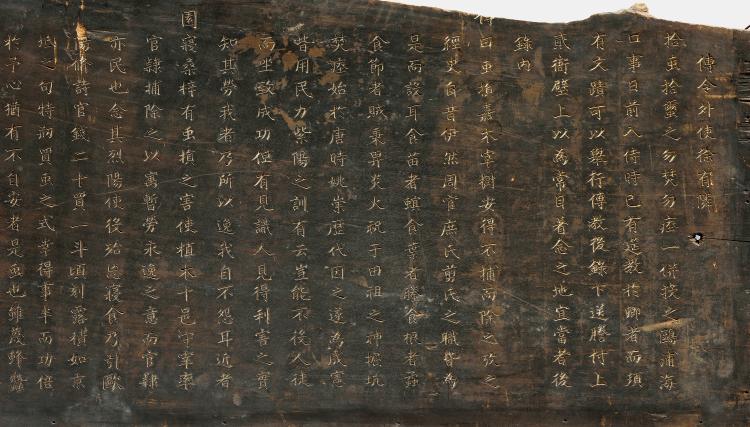 傳令外使徐有隣
拾虫拾蠶之勿焚勿瘞一倂投之鷗浦海
口事日前入侍時已有筵敎於卿者而頃
有文蹟可以擧行傳敎後錄下送謄付上
貳衙壁上以爲常目着念之地宜當者後
錄內
傳曰虫損嘉木宰樹安得不捕而除之攷之
經史自昔伊然周官庶氏剪氏之職寔爲
是而設耳食苗者螟食葉者螣食根者蟊
食節者賊秉畀炎火祝于田祖之神掘坑
焚瘞始於唐時姚崇歷代因之遂爲成憲
皆用民力紫陽之訓有云豈能不役人徒
而坐致成功但有見識人見得利害之實
知其勞我者乃所以逸我自不怨耳近者
園寢桑梓有虫損之害使植木十邑守宰率
官隷捕除之以寓暫勞永逸之意而官隷
亦民也念其烈陽使役殆忘寢食乃引歐
陽脩詩官錢二十買一斗頃刻露積如京
坻之句特頒買虫之式常得事半而功倍
於予心猶有不自安者是虫也雖蔑蜂蠆